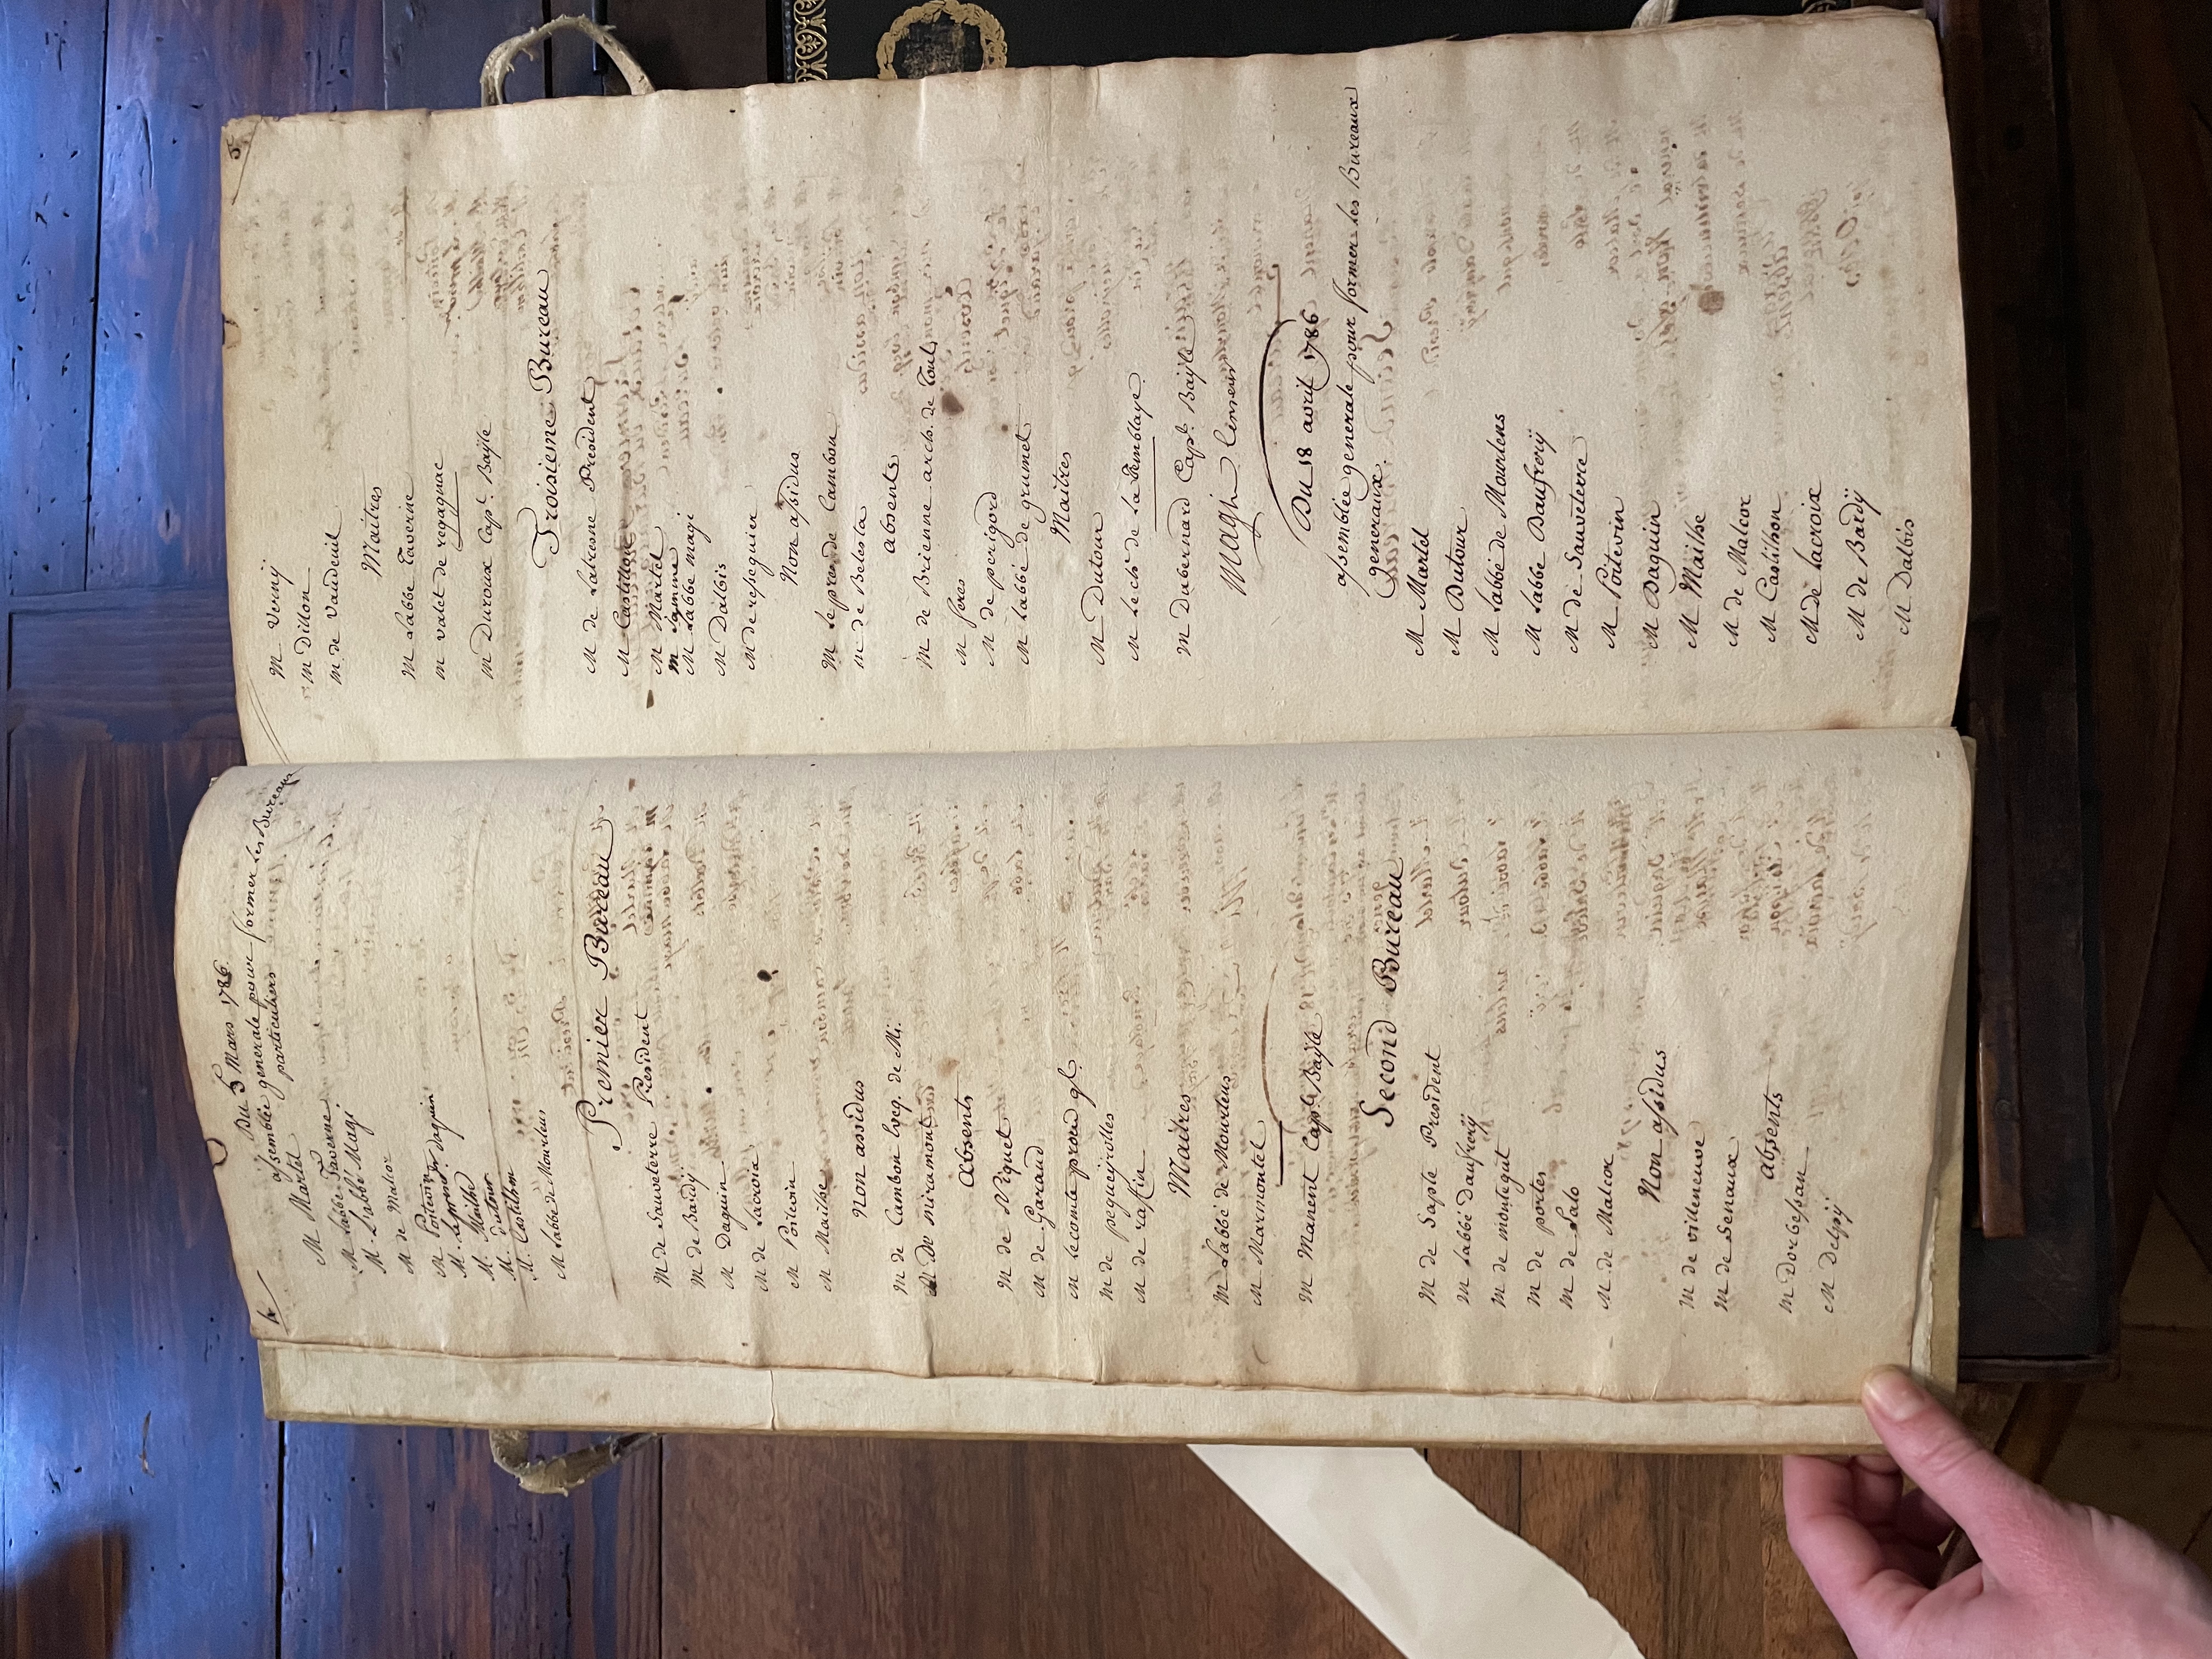 4
Du 5 Mars 1786.
assemblée generale pour former les Bureaux
particuliers
M Martel
M Labbé Taverne
M. L'abbé Magi
M de Malcor
M Poitevin daguin
M. Maithe
M. dutour
M. Castilhon
M Labbé de Mourlens
Premier Bureau
M de Sauveterre President
M de Bardÿ
M Daguin
M de Lacroix
M Poitevin
M Maithe
Non assidus
M de Cambon Eveq. de Mi.
M De miramont
absents
M de Niquet
M de Garaud
M Lecomte procur gl.
M de pegueyrolles
M de raffin
Maitres
M Labbé de Mourlens
M Marmontel
M Manent Capl. Bayle
Second Bureau
M de Sapte President
M Labbé Daufrerÿ
M de montegut
M de portes
M de Lalo
M de Malcor
Non assidus
M de villeneuve
M de Senaux
absents
M Dorbessan
M Delpÿ
5
M Vernÿ
M Dillon
M de Vaudeuil
Maitres
M Labbé Taverne
M valet de regagnac
M Duroux Capl. Bayle
Troisieme Bureau
M de Latresne President
M Castilhon
M Martel
M Jamme
M Labbé Magi
M Dalbis
M de resseguier
Non assidus
M le presid. de Cambon
M de Belesta
absents
M de Brienne arch. de Toul.
M peres
M de perigord
M Labbé de grumet
Maitres
M Dutour
M Lech. de la Tremblaye
M Dubernard Capl. Bayle
Magi Censeur
Du 18 avril 1786
assemblée generale pour former les Bureaux
generaux.
M Martel
M Dutour
M Labbé de Mourlens
M Labbé Daufrerÿ
M de Sauveterre
M Poitevin
M Daguin
M Maithe
M de Malcor
M Castilhon
M de Lacroix
M de Bardÿ
M Dalbis